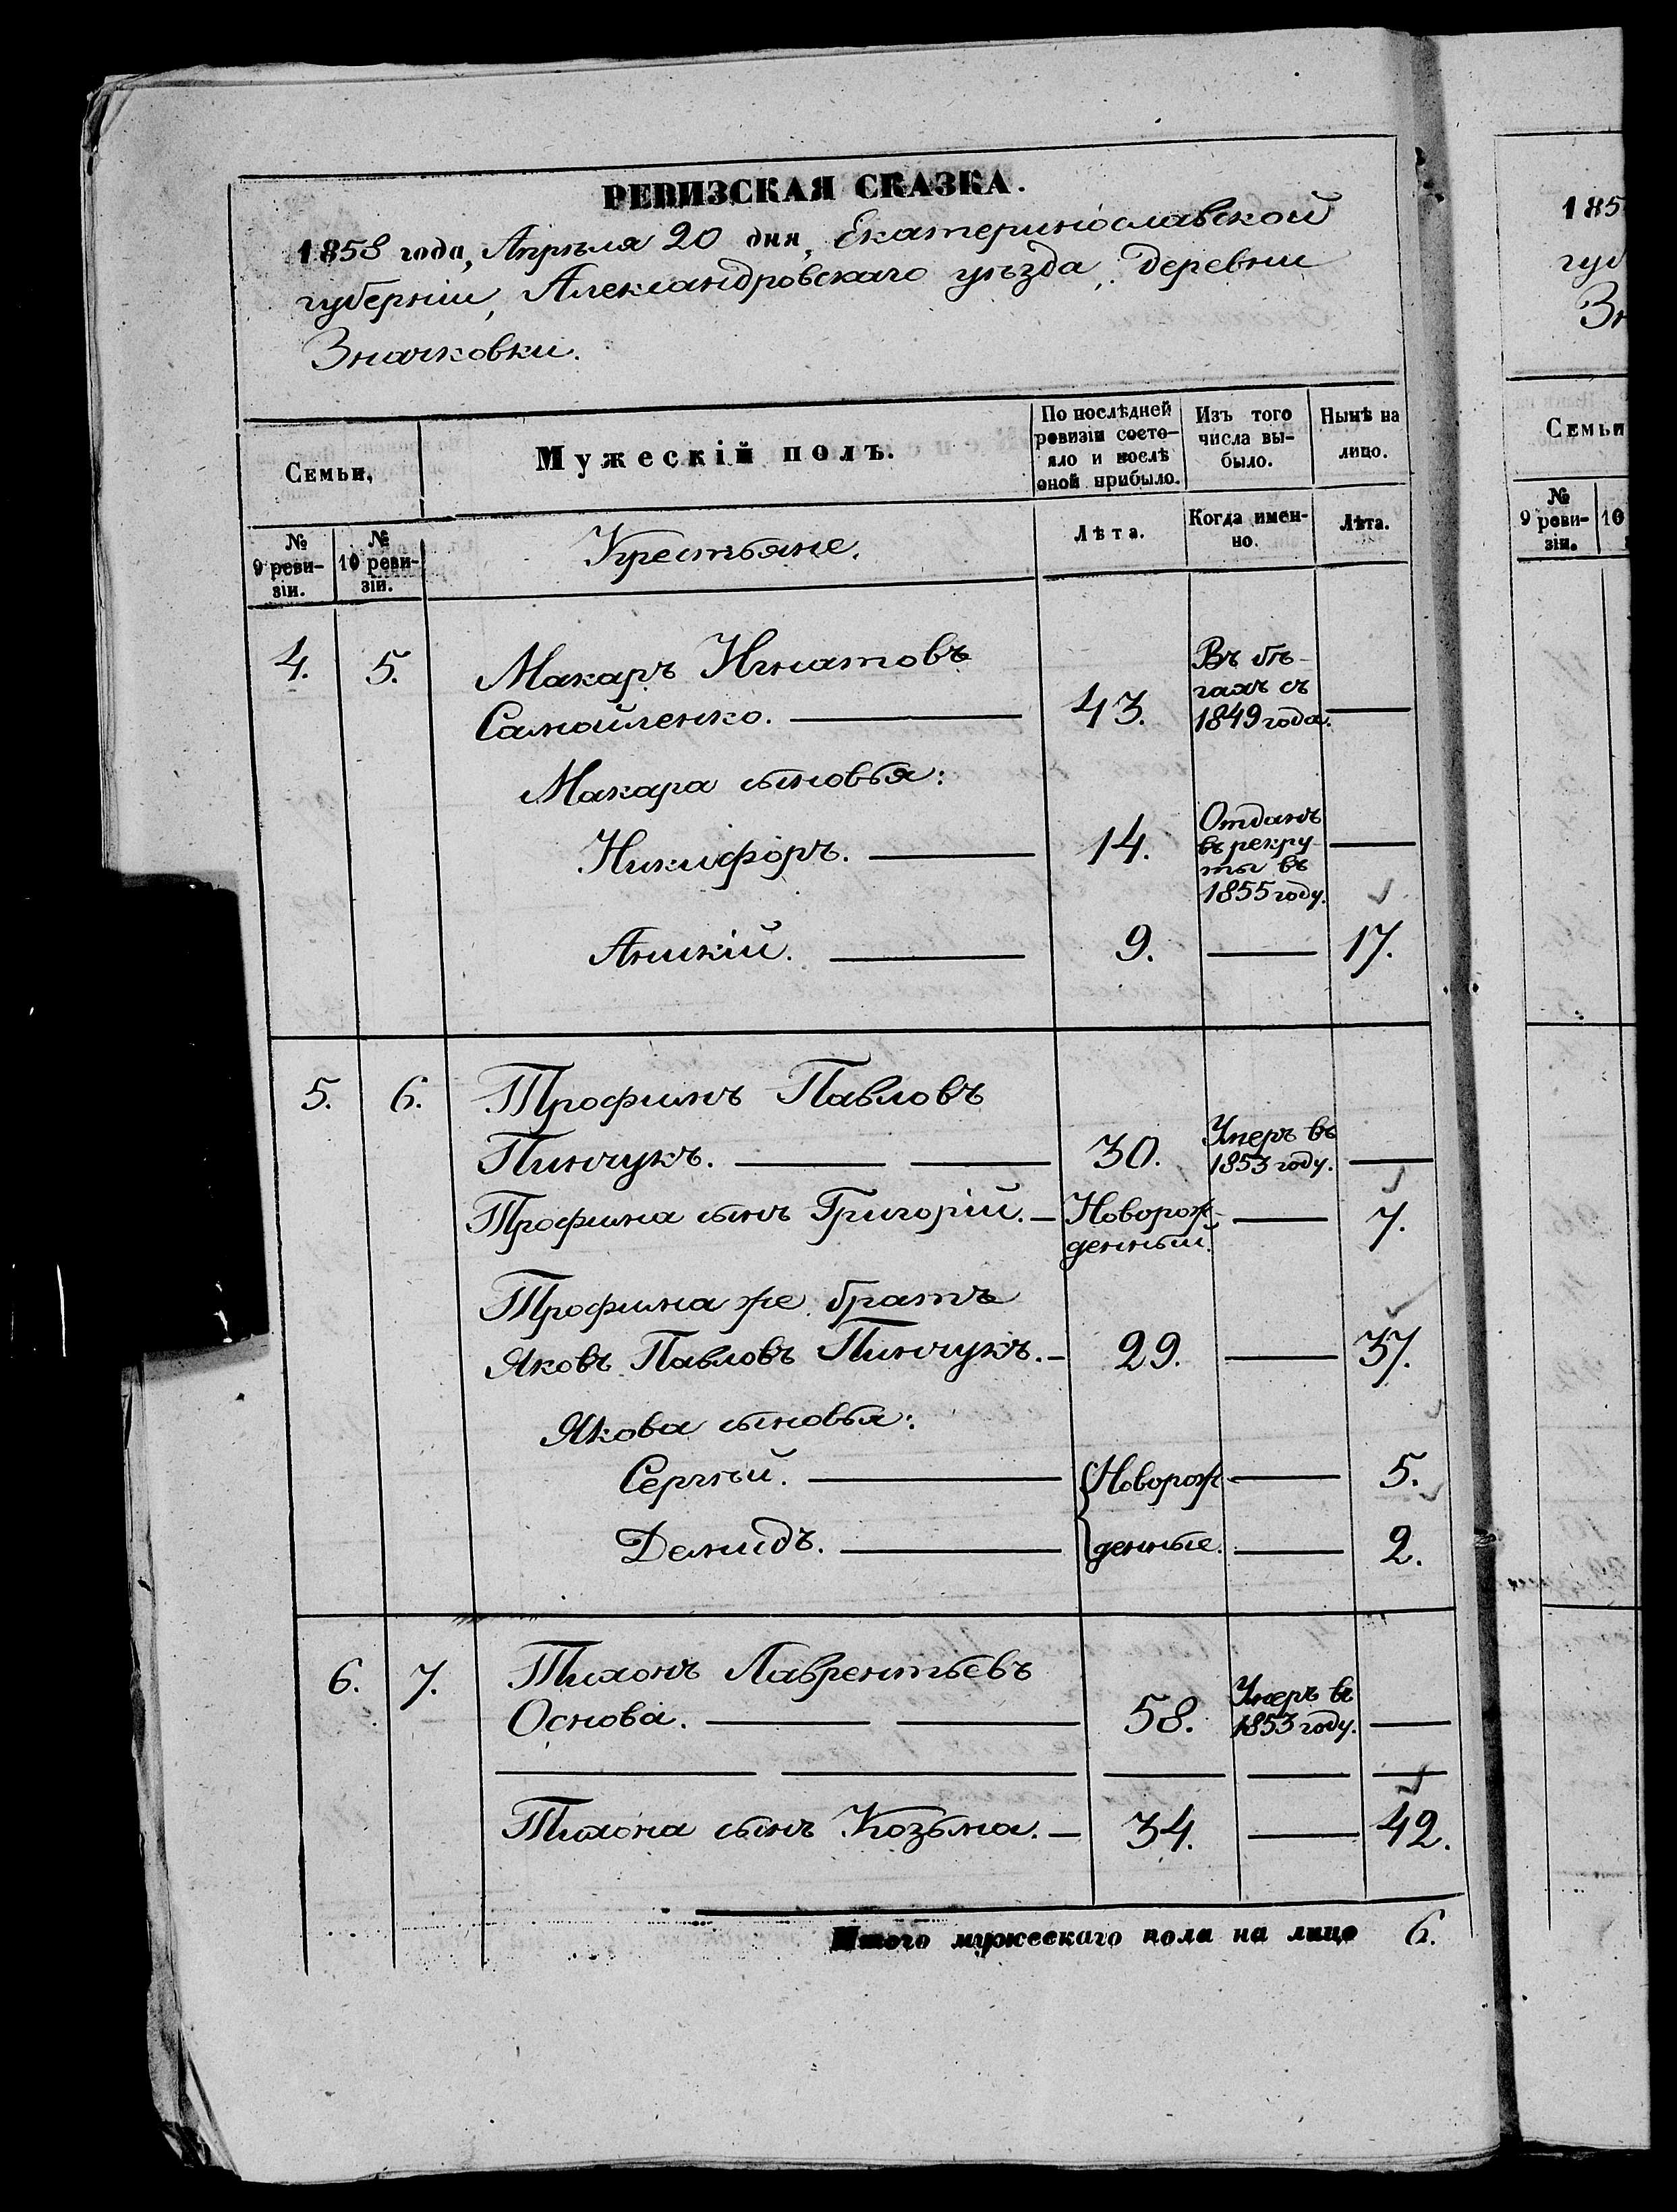 РЕВИЗСКАЯ СКАЗКА.
1858 года, Апрѣля 20 дня, Екатеринославской
губерніи, Александровскаго уѣзда, деревни
Значковки.
Семьи,
Мужескій полъ.
По послѣдней ревизіи состояло и послѣ оной прибыло.
Изъ того числа выбыло.
Нынѣ на лицо.
№ 9 реви-зіи.
№ 10 реви-зіи.
Крестьяне.
Лѣта.
Когда имен-но.
Лѣта.
4. 5. Макаръ Игнатовъ
Самойленко. — 43. Въ бѣ-гахъ съ 1849 года. —
Макара сыновья:
Никифоръ. — 14. Отданъ въ рекру-ты въ 1855 году. —
Аникій. — 9. — 17.
5. 6. Трофимъ Павловъ
Пинчукъ. — — 30. Умеръ въ 1853 году. —
Трофима сынъ Григорій. — Новорож-денный. — 7.
Трофима же братъ
Яковъ Павловъ Пинчукъ. — 29. — 37.
Якова сыновья:
Сергѣй. — Новорож — 5.
Демидъ. — денные. — 2.
6. 7. Тихонъ Лаврентьевъ
Основа. — — 58. Умеръ въ 1853 году. —
Тихона сынъ Козьма. — 34. — 42.
Итого мужескаго пола на лицо 6.
185
губ
Зн
Семьи
№ 9 реви-зіи.
10